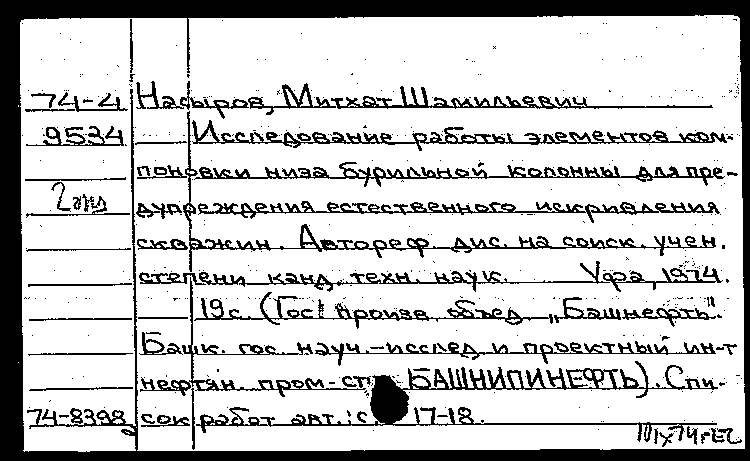 74-4 Насыров, Митхат Шамильевич
9534 Исследование работы элементов ком-
поновки низа бурильной колонны для пре-
2 экз дупреждения естественного искривления
скважин. Автореф. дис. на соиск. учен.
степени канд. техн. наук. Уфа, 1974.
19с. (Гос. произв. объед. „Башнефть".
Башк. гос. науч.-исслед и проектный ин-т
нефтян. пром-сти БАШНИПИНЕФТЬ). Спи-
74-8398 сок работ авт.: с. 17-18.